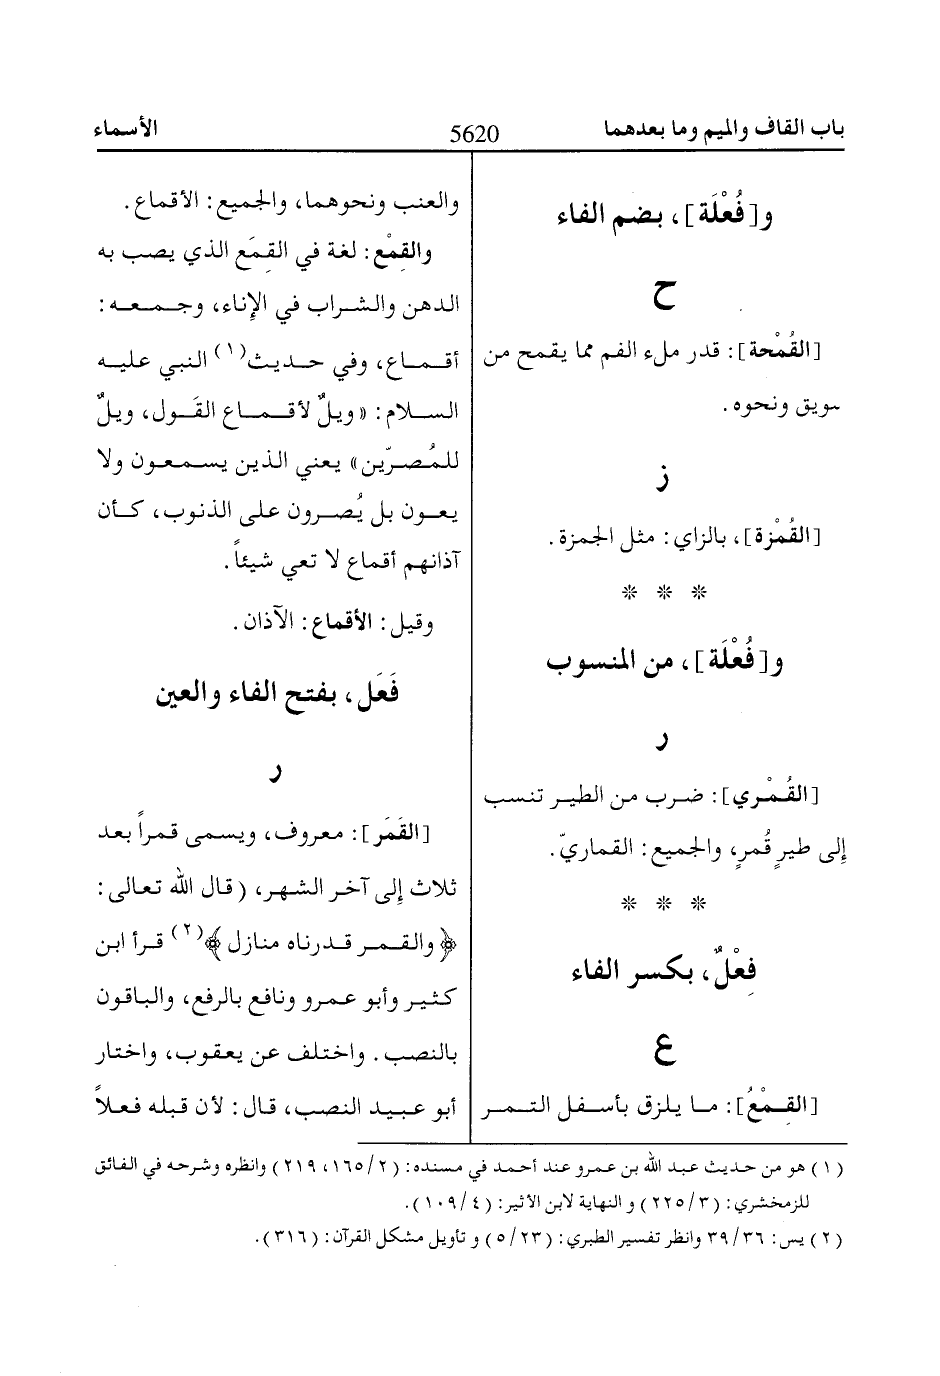 باب القاف والميم وما بعدهما
5620
الأسماء
و[فُعْلَة]، بضم الفاء
ح
[القُمْحة]: قدر ملء الفم مما يقمح من
سويق ونحوه.
ز
[القُمْزة]، بالزاي: مثل الجمزة.
* * *
و[فُعْلَة]، من المنسوب
ر
[القُمْري]: ضرب من الطير تنسب
إلى طيرٍ قُمرٍ، والجميع: القماريّ.
* * *
فِعْلٌ، بكسر الفاء
ع
[القِمْعُ]: ما يلزق بأسفل التمر
والعنب ونحوهما، والجميع: الأقماع.
والقِمْع: لغة في القِمَع الذي يصب به
الدهن والشراب في الإناء، وجمعه:
أقماع، وفي حديث(١) النبي عليه
السلام: «ويلٌ لأقماع القول، ويلٌ
للمُصرّين» يعني الذين يسمعون ولا
يعون بل يُصرون على الذنوب، كأن
آذانهم أقماع لا تعي شيئاً.
وقيل: الأقماع: الآذان.
فَعَل، بفتح الفاء والعين
ر
[القَمَر]: معروف، ويسمى قمراً بعد
ثلاث إلى آخر الشهر، (قال الله تعالى:
﴿والقمر قدرناه منازل﴾(٢) قرأ ابن
كثير وأبو عمرو ونافع بالرفع، والباقون
بالنصب. واختلف عن يعقوب، واختار
أبو عبيد النصب، قال: لأن قبله فعلاً
(١) هو من حديث عبد الله بن عمرو عند أحمد في مسنده: (٢/١٦٥، ٢١٩) وانظره وشرحه في الفائق
للزمخشري: (٣/٢٢٥) و النهاية لابن الأثير: (٤/١٠٩).
(٢) يس: ٣٦/٣٩ وانظر تفسير الطبري: (٢٣/٥) و تأويل مشكل القرآن: (٣١٦).